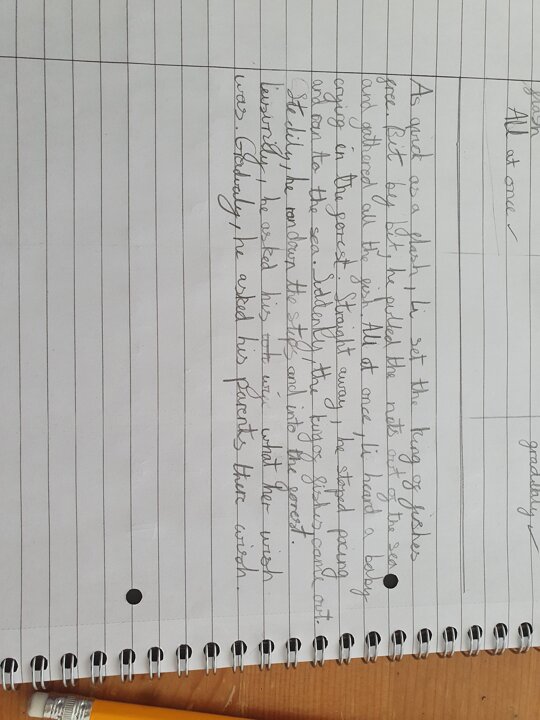 flash
All at once ✓
gradully ✓
As quick as a flash, Li set the king of fishes
free. Bit by bit, he pulled the nets out of the sea
and gathered all the fish. All at once, li heard a baby
crying in the forest. Straight away, he stoped
and ran to the sea. Suddenly, the king of fishes came out.
Stedily, he ran down the steps and into the forest.
leiusirly, he asked his what her wish
was. Gradualy, he asked his parents there wish.